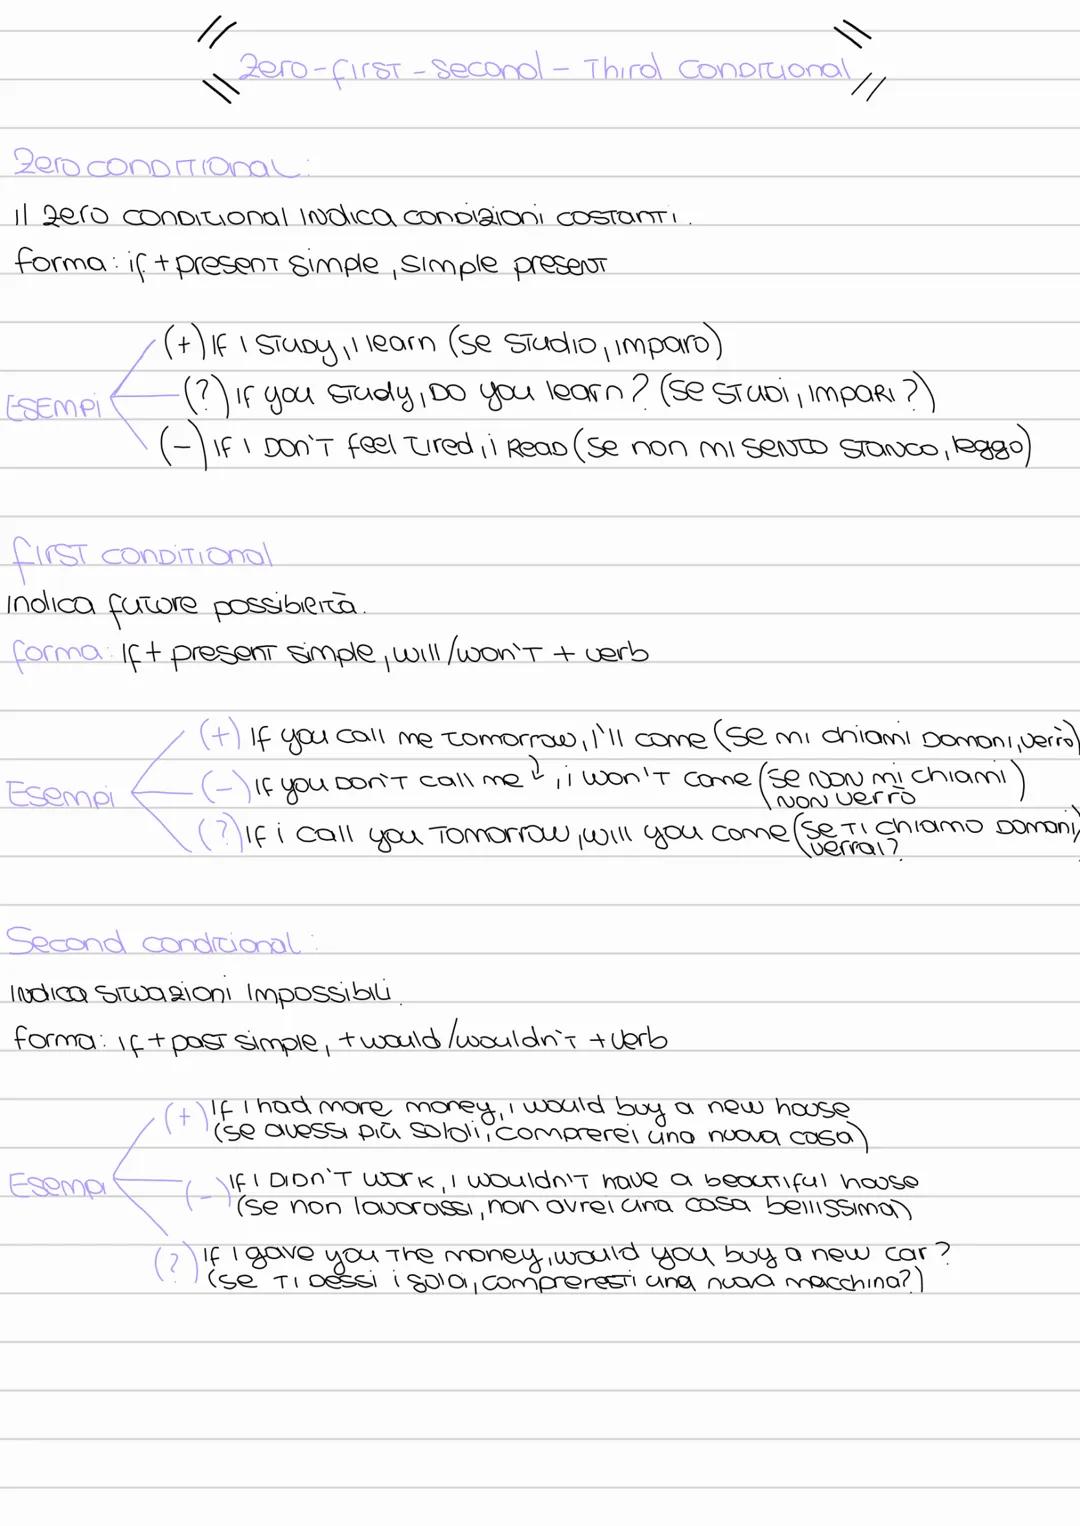 Zero-first-Second-Third Conditional
Zero conditional:
Il zero conditional indica condizioni costanti.
forma: if + present simple, simple present
(+) If I study, I learn (se studio, imparo)
ESEMPI (?) If you study, do you learn? (se studi, impari?)
(-) If I don't feel tired, i read (se non mi sento stanco, leggo)
first conditional
indica future possibilità.
forma: If + present simple, will/won't + verb
(+) If you call me tomorrow, I'll come (se mi chiami domani, verrò)
Esempi (-) If you don't call me, i won't come (se non mi chiami
non verrò)
(?) If i call you tomorrow, will you come (se ti chiamo domani,
verrai?
Second conditional:
Indica situazioni impossibili.
forma: if + past simple, + would/wouldn't + verb
(+) If I had more money, i would buy a new house
(se avessi più soldi, comprerei una nuova casa)
Esempi (-) If I didn't work, I wouldn't have a beautiful house
(se non lavorassi, non avrei una casa bellissima)
(?) If I gave you the money, would you buy a new car?
(se ti dessi i soldi, compreresti una nuova macchina?)